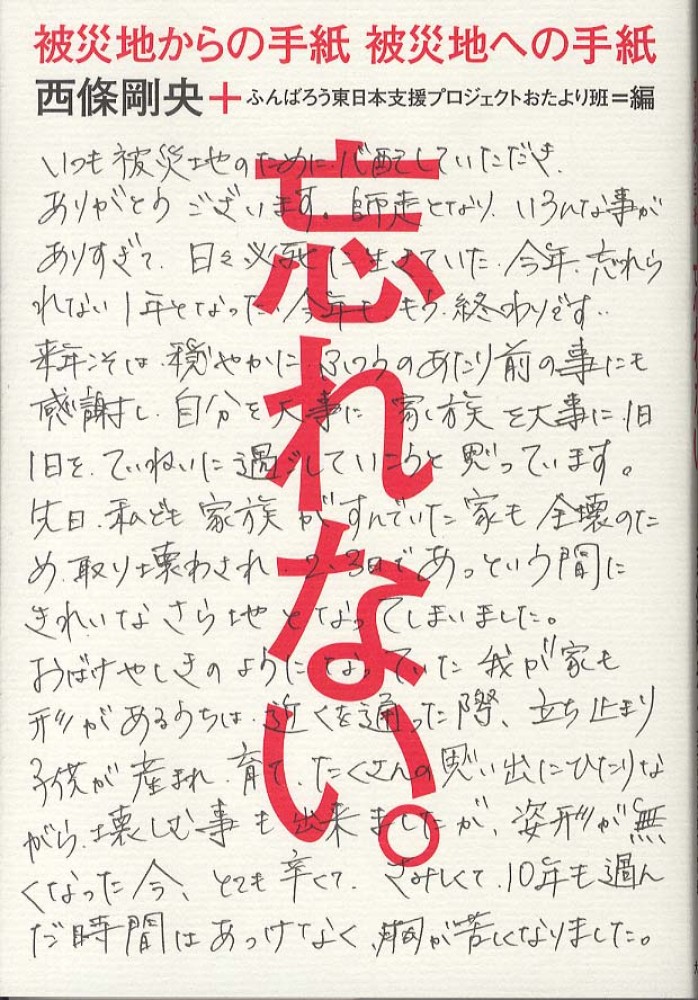 被災地からの手紙 被災地への手紙
西條剛央+ふんばろう東日本支援プロジェクトおたより班=編
忘れない。
いつも被災地のために心配していただき、
ありがとうございます。師走となり、いろんな事が
ありすぎて、日々必死に生きていた、今年、忘れら
れない1年となった、今年も、もう、終わりです‥
来年こそは、穏やかに、ふつうのあたり前の事にも
感謝し、自分を大事に、家族を大事に、1日
1日を、ていねいに過ごしていこうと思っています。
先日、私ども家族がすんでいた家も全壊のた
め、取り壊わされ、2、3日であっという間に
きれいなさら地となってしまいました。
おばけやしきのようになっていた我が家も
形があるうちは、近くを通った際、立ち止まり
子供が産まれ、育て、たくさんの思い出にひたりな
がら、壊しむ事も出来ましたが、姿形が無
くなった今、とても辛くて、さみしくて、10年も過ん
だ時間はあっけなく、胸が苦しくなりました。